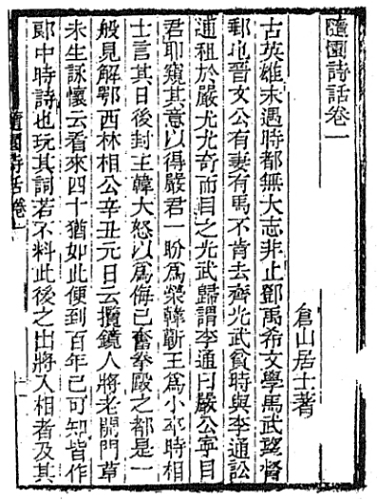 隨園詩話卷一
倉山居士著
古英雄未遇時都無大志非止鄧禹希文學馬武望督
郵也晉文公有妻有馬不肯去齊光武貧時與李通訟
逋租於嚴尤尤奇而目之光武歸謂李通曰嚴公寧目
君耶窺其意以得嚴君一盼爲榮韓蘄王爲小卒時相
士言其日後封王韓大怒以爲侮已奮拳毆之都是一
般見解鄂西林相公辛丑元日云攬鏡人將老開門草
未生詠懷云看來四十猶如此便到百年已可知皆作
郎中時詩也玩其詞若不料此後之出將入相者及其
隨園詩話 卷一
一